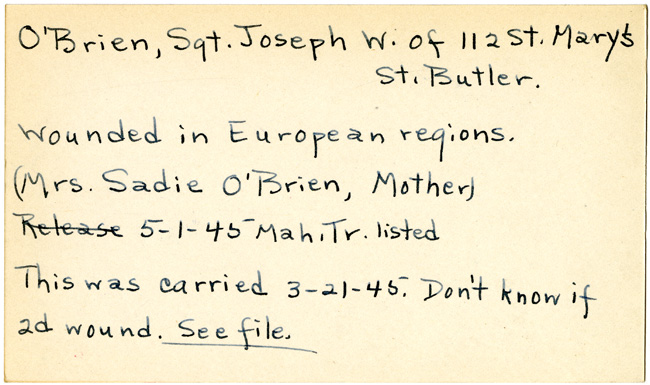 O'Brien, Sgt. Joseph W. of 112 St. Mary's
St. Butler.
Wounded in European regions.
(Mrs. Sadie O'Brien, Mother)
Release 5-1-45 Mah. Tr. listed
This was carried 3-21-45. Don't know if
2d wound. See file.